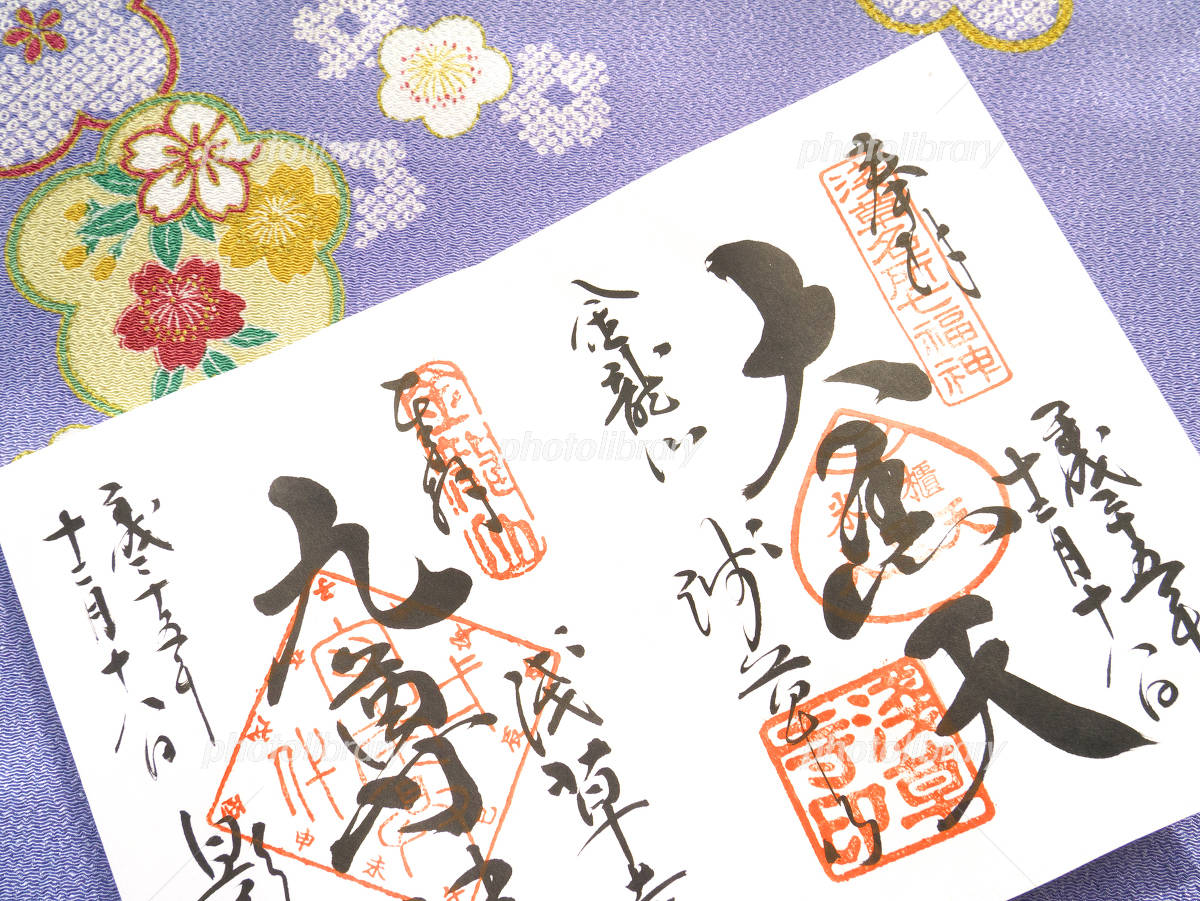 奉拝
浅草名所七福神
平成二十五年
十二月十八日
大黒天
米櫃
金龍山
浅草寺
浅草寺印
奉拝
金龍山
浅草寺
九萬
申
未
平成二十五年
十二月十八日
photolibrary
photolibrary
photolibrary
photolibrary